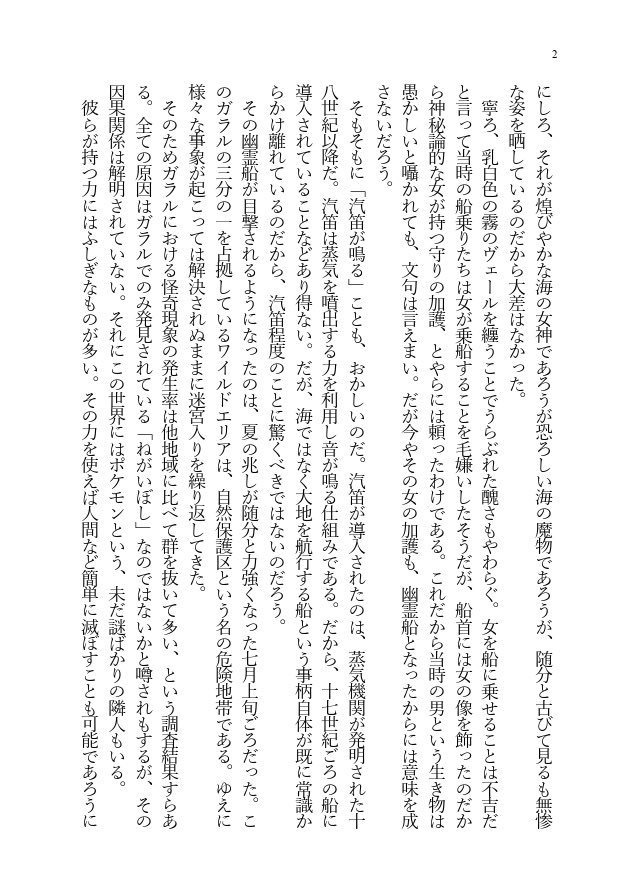 2
にしろ、それが煌びやかな海の女神であろうが恐ろしい海の魔物であろうが、随分と古びて見るも無惨
な姿を晒しているのだから大差はなかった。
　寧ろ、乳白色の霧のヴェールを纏うことでうらぶれた醜さもやわらぐ。女を船に乗せることは不吉だ
と言って当時の船乗りたちは女が乗船することを毛嫌いしたそうだが、船首には女の像を飾ったのだか
ら神秘論的な女が持つ守りの加護、とやらには頼ったわけである。これだから当時の男という生き物は
愚かしいと囁かれても、文句は言えまい。だが今やその女の加護も、幽霊船となったからには意味を成
さないだろう。
　そもそもに「汽笛が鳴る」ことも、おかしいのだ。汽笛が導入されたのは、蒸気機関が発明された十
八世紀以降だ。汽笛は蒸気を噴出する力を利用し音が鳴る仕組みである。だから、十七世紀ごろの船に
導入されていることなどあり得ない。だが、海ではなく大地を航行する船という事柄自体が既に常識か
らかけ離れているのだから、汽笛程度のことに驚くべきではないのだろう。
　その幽霊船が目撃されるようになったのは、夏の兆しが随分と力強くなった七月上旬ごろだった。こ
のガラルの三分の一を占拠しているワイルドエリアは、自然保護区という名の危険地帯である。ゆえに
様々な事象が起こっては解決されぬままに迷宮入りを繰り返してきた。
　そのためガラルにおける怪奇現象の発生率は他地域に比べて群を抜いて多い、という調査結果すらあ
る。全ての原因はガラルでのみ発見されている「ねがいぼし」なのではないかと噂されもするが、その
因果関係は解明されていない。それにこの世界にはポケモンという、未だ謎ばかりの隣人もいる。
　彼らが持つ力にはふしぎなものが多い。その力を使えば人間など簡単に滅ぼすことも可能であろうに